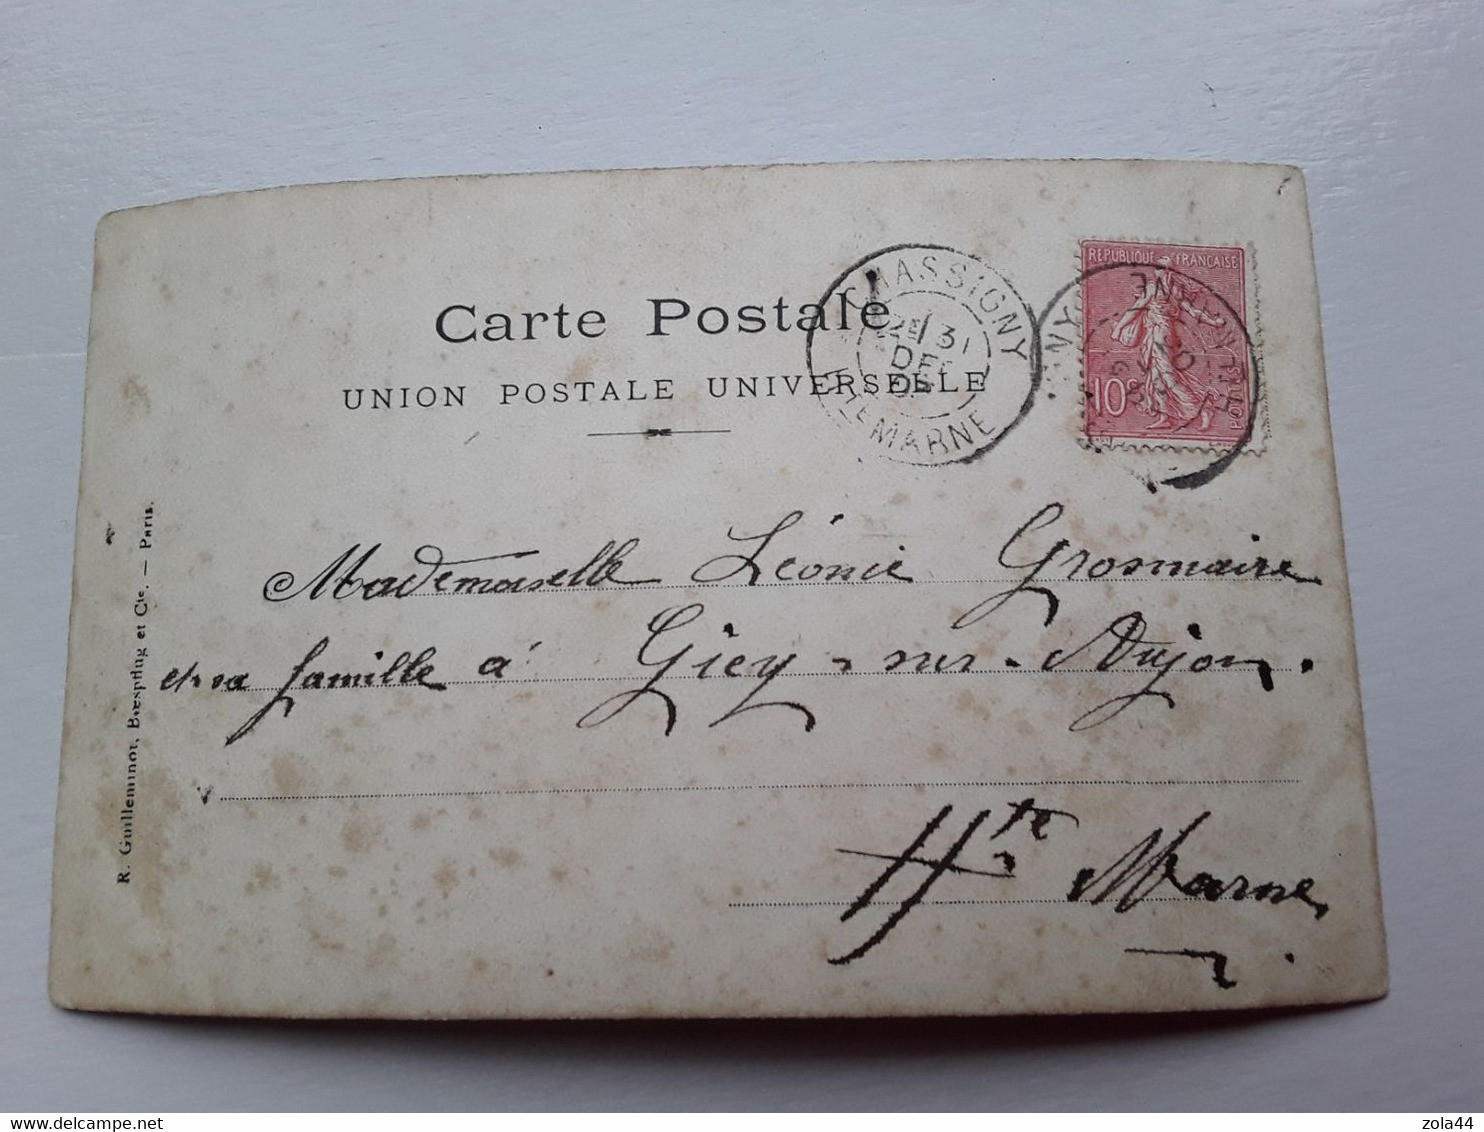 Carte Postale
UNION POSTALE UNIVERSELLE
CHASSIGNY
31
DEC
HTE MARNE
REPUBLIQUE FRANÇAISE
10c
POSTES
Mademoiselle Léonie Grosmaire
et sa famille à Giey-sur-Aujon.
Hte Marne
R. Guilleminot, Bœspflug et Cie. — Paris.
zola44